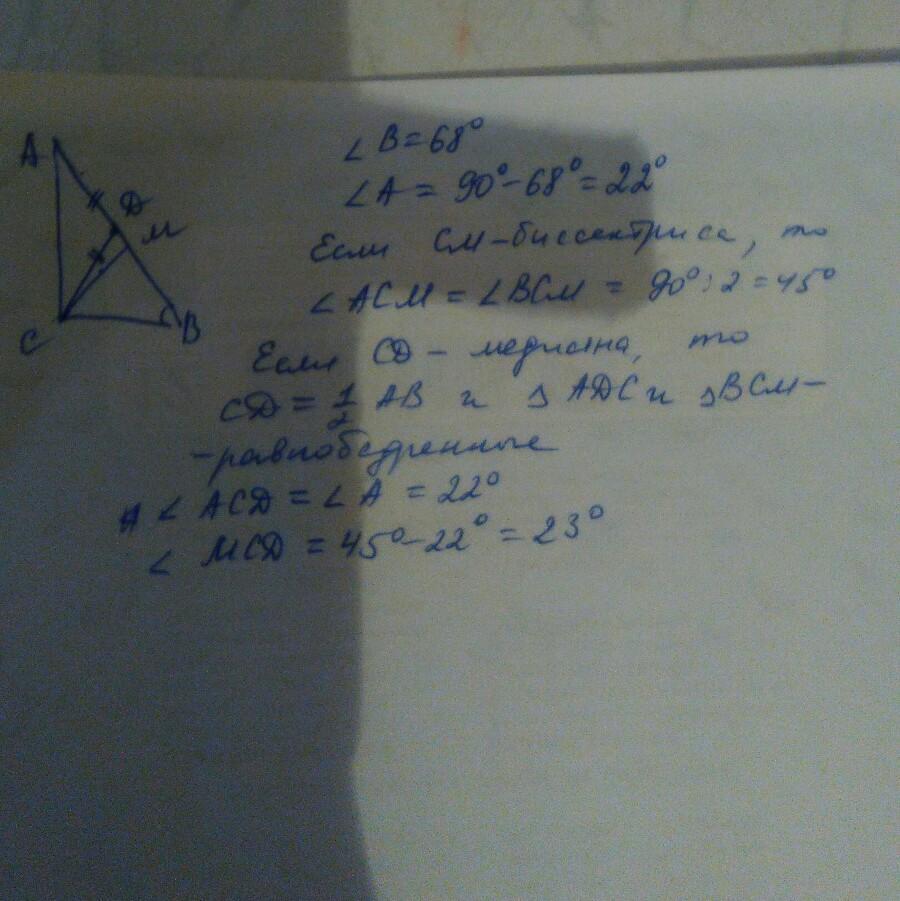 A
D
M
C
B
∠ B = 68°
∠ A = 90° - 68° = 22°
Если CM - биссектриса, то
∠ ACM = ∠ BCM = 90° : 2 = 45°
Если CD - медиана, то
CD = 1/2 AB и △ ADC и △ BCM -
- равнобедренные
∠ ACD = ∠ A = 22°
∠ MCD = 45° - 22° = 23°